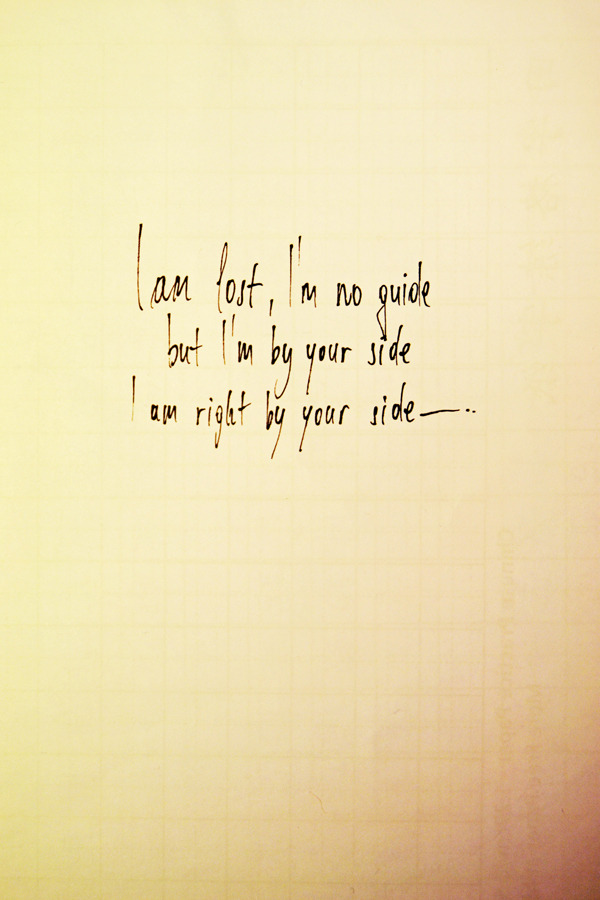 I am lost, I'm no guide
but I'm by your side
I am right by your side—..